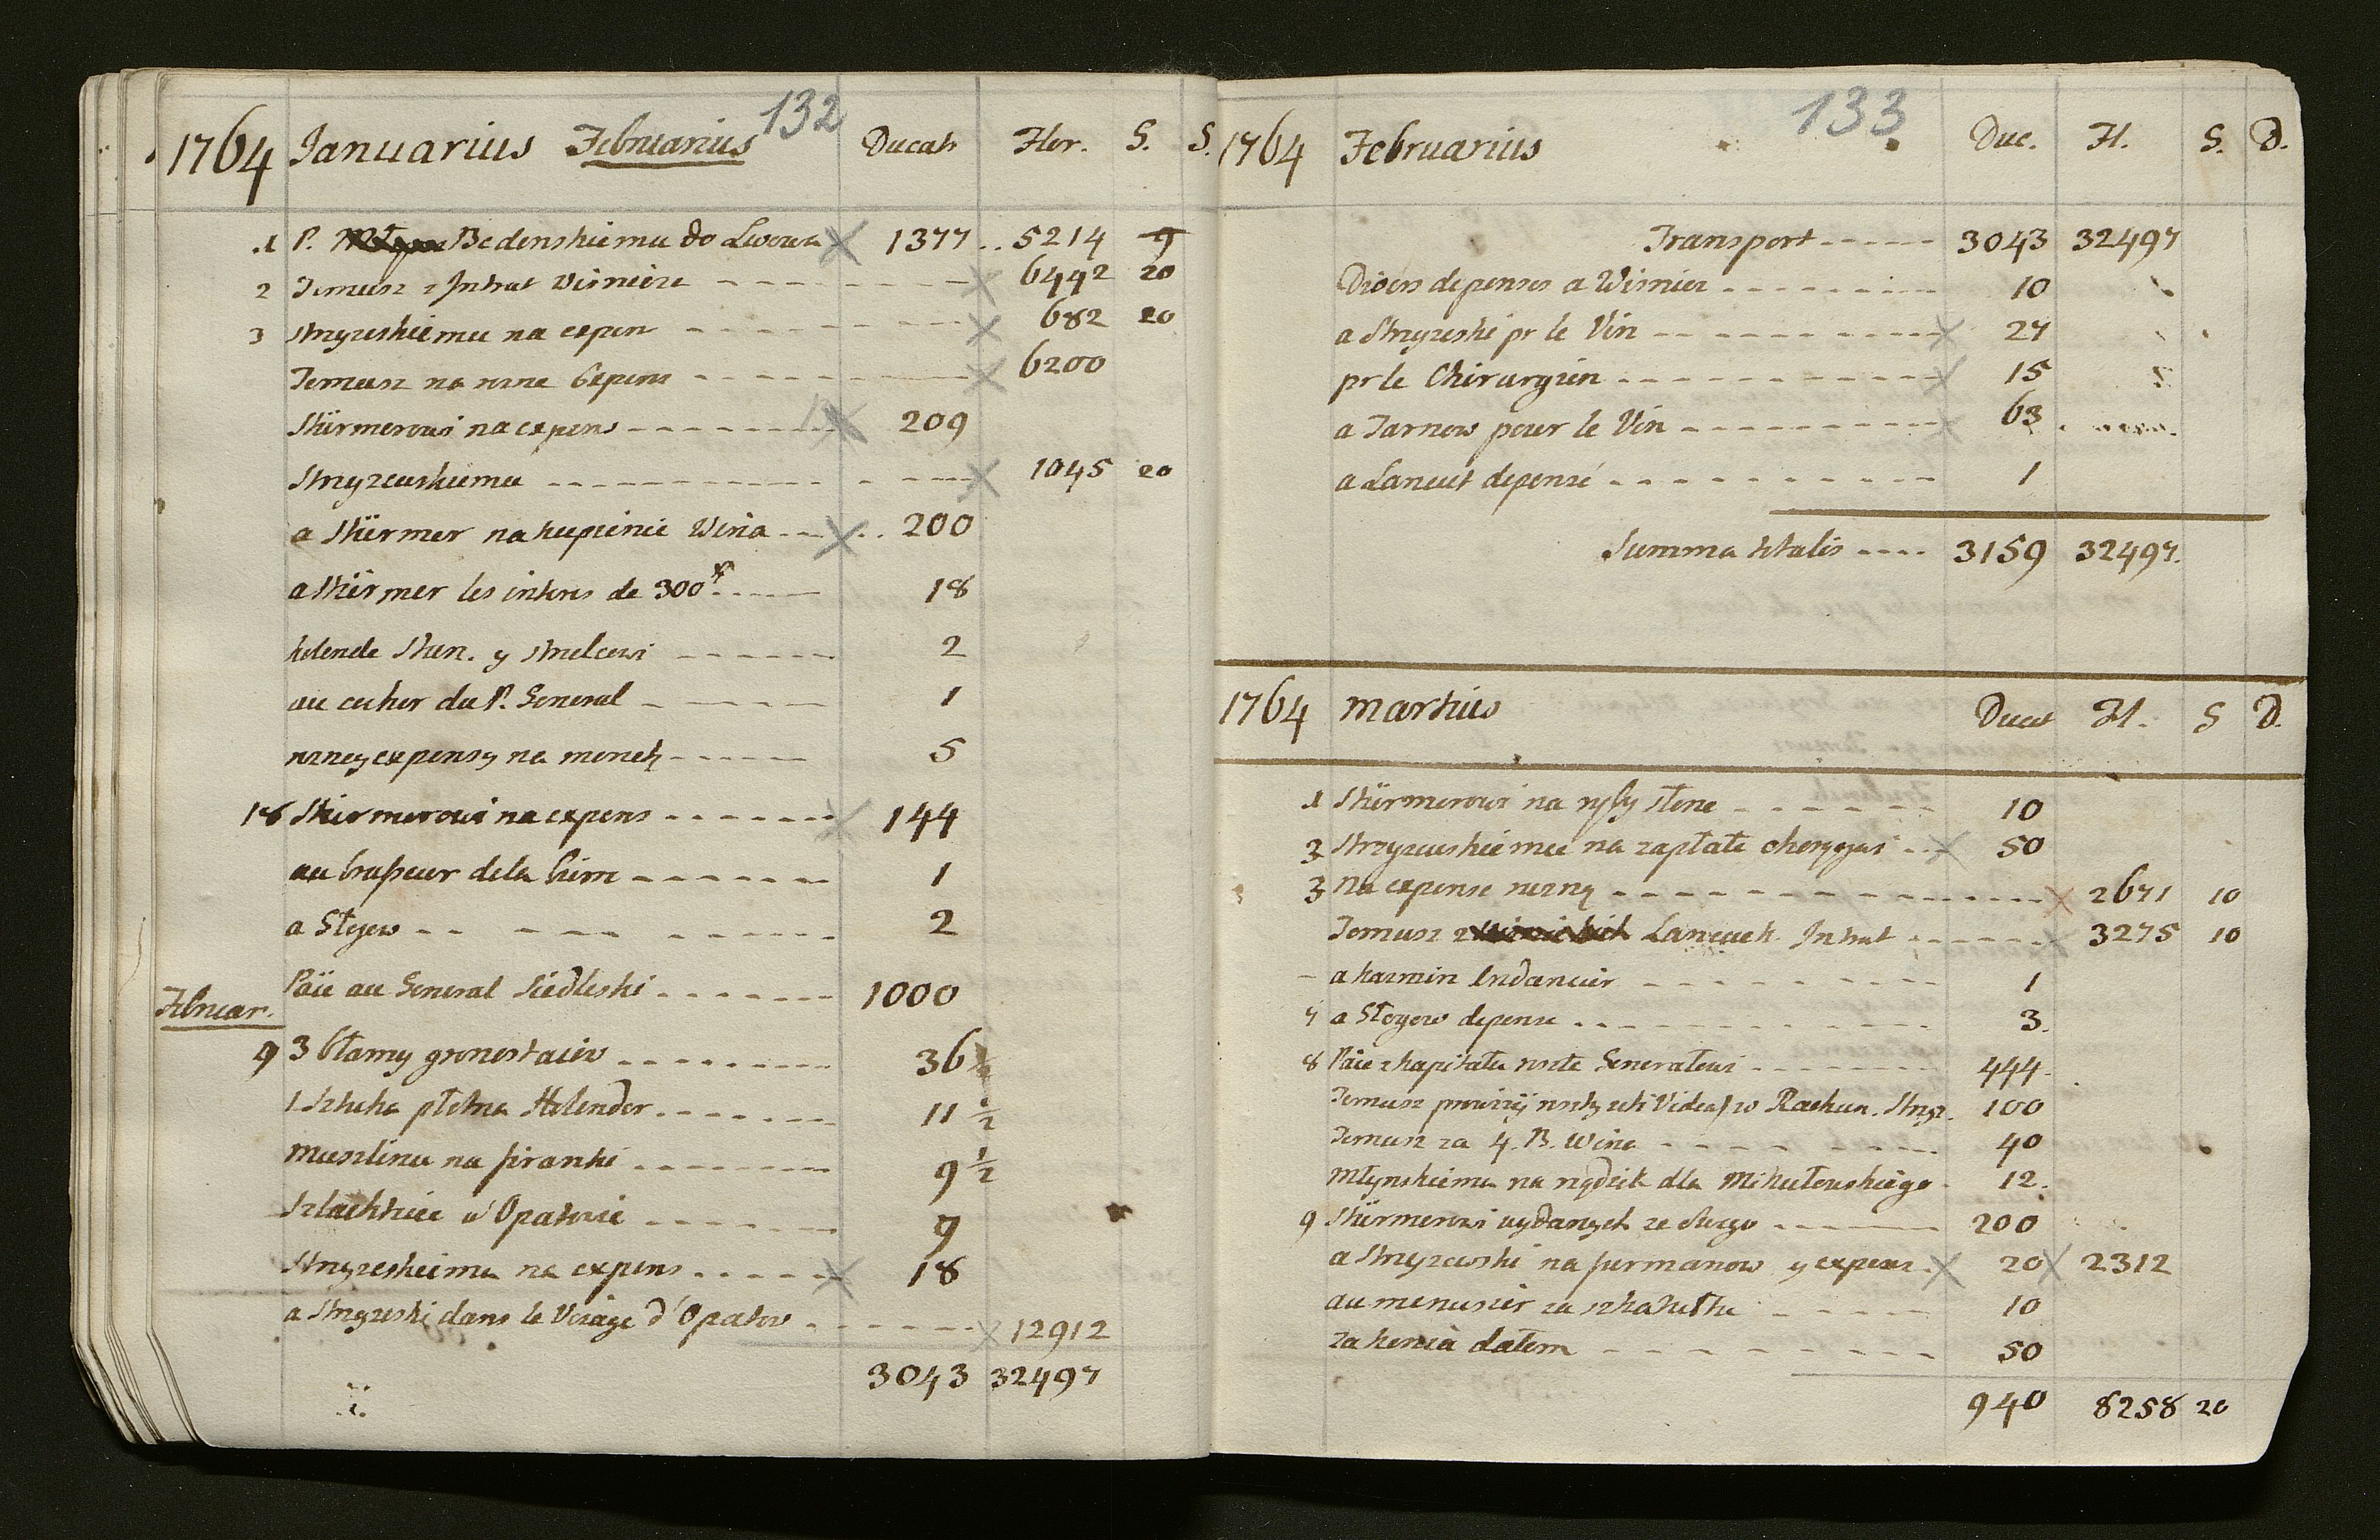 132
1764 Januarius Februarius Ducats Flor. S. S.
1 P. Bedenskiemu do Lwowa 1377 .. 5214 9
2 Jemusz z Intrat Visnicze 6442 20
3 Strzyzeskiemu na expen 682 20
Jemusz na rozne Expens 6200
Stürmerowi na expens 209
Strzyzewskiemu 1045 20
a Stürmer na kupienie Wina 200
a Stürmer les interes de 300 # 18
kolende Stan. y strzelcowi 2
au cocher du P. General 1
rozney expensy na monetę 5
18 Stürmerowi na expens 144
au brasseur de la bierre 1
a Stojow 2
Páie au General Siedleski 1000
Februar.
9 3 błamy gronostaiow 36 ½
1 sztuka płotna Holender 11 ½
Muszlinu na firanki 9 ½
Szlachticе w Opatowie 9
Strzyzeskiemu na expens 18
a Strzyzeski dans le Voiage d'Opatow 12912
3043 32497
133
1764 Februarius Duc. Fl. S. D.
Transport 3043 32497
Divers depenses a Wisnicz 10
a Strzyzeski pr le Vin 27
pr le Chirurgien 15
a Tarnow pour le Vin 63
a Lancut depensé 1
Summa totalis 3159 32497.
1764 Martius Ducat Fl. S D.
1 Stürmerowi na rysy słone 10
3 Strzyzewskiemu na zapłate 50
3 Na expense rozną 2671 10
Jemusz z Lancuck. Intrat 3275 10
- a kazmin 1
7 a Stojow depense 3.
8 Páie z kapitału reszte Generałowi 444
Jemusz prowizij resztę Videat w Rachun. Strzyz. 100
Jemusz za 4. B. Wina 40
Młynskiemu na rządzik dla Mikułowskiego 12.
9 Stürmerowi wydanych ze swego 200
a Strzyzewski na furmanow y expens 20 2312
au menusier za szkatułke 10
za konia dałem 50
940 8258 20